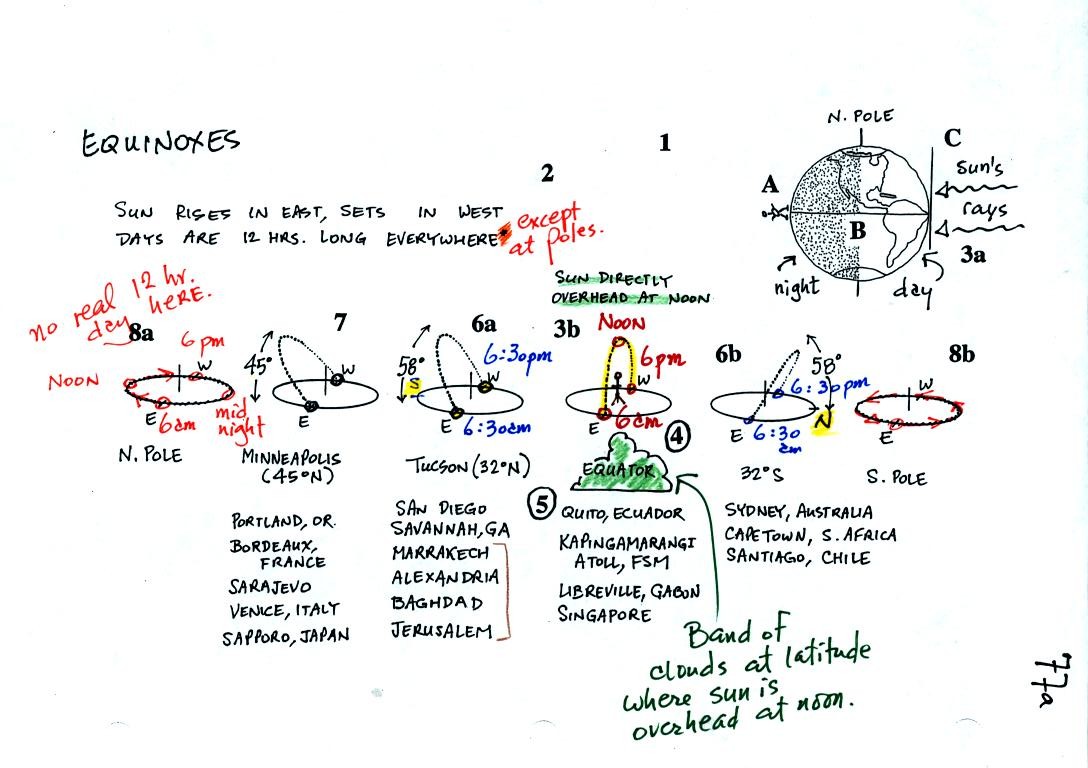 EQUINOXES
1
2
SUN RISES IN EAST, SETS IN WEST
DAYS ARE 12 HRS. LONG EVERYWHERE*
except
at poles.
N. POLE
A
B
C
Sun's
rays
3a
night
day
no real 12 hr.
day HERE.
SUN DIRECTLY
OVERHEAD AT NOON
8a
6pm
NOON
W
E
6am
mid
night
N. POLE
7
45°
W
E
MINNEAPOLIS
(45°N)
PORTLAND, OR.
BORDEAUX,
FRANCE
SARAJEVO
VENICE, ITALY
SAPPORO, JAPAN
6a
58°
S
6:30pm
W
E
6:30am
TUCSON (32°N)
SAN DIEGO
SAVANNAH, GA
MARRAKECH
ALEXANDRIA
BAGHDAD
JERUSALEM
3b
NOON
6pm
W
E
6am
4
EQUATOR
5
QUITO, ECUADOR
KAPINGAMARANGI
ATOLL, FSM
LIBREVILLE, GABON
SINGAPORE
6b
58°
6:30pm
N
E
6:30
am
32°S
SYDNEY, AUSTRALIA
CAPETOWN, S. AFRICA
SANTIAGO, CHILE
8b
W
E
S. POLE
Band of
clouds at latitude
where sun is
overhead at noon.
77a